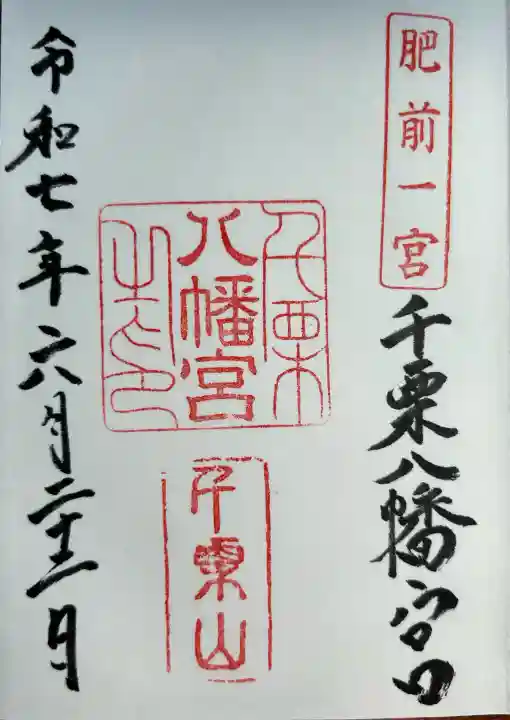 肥前一宮
千栗八幡宮
千栗
八幡宮
之印
千栗山
令和七年六月二十二日